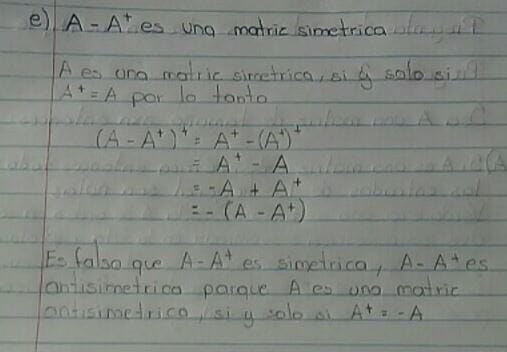 e) A - A⁺ es una matriz simetrica
A es una matriz simetrica, si y solo si
A⁺ = A por lo tanto
(A - A⁺)⁺ = A⁺ - (A⁺)⁺
= A⁺ - A
= -A + A⁺
= - (A - A⁺)
Es falso que A - A⁺ es simetrica, A - A⁺ es
antisimetrica porque A es una matriz
antisimetrica, si y solo si A⁺ = -A